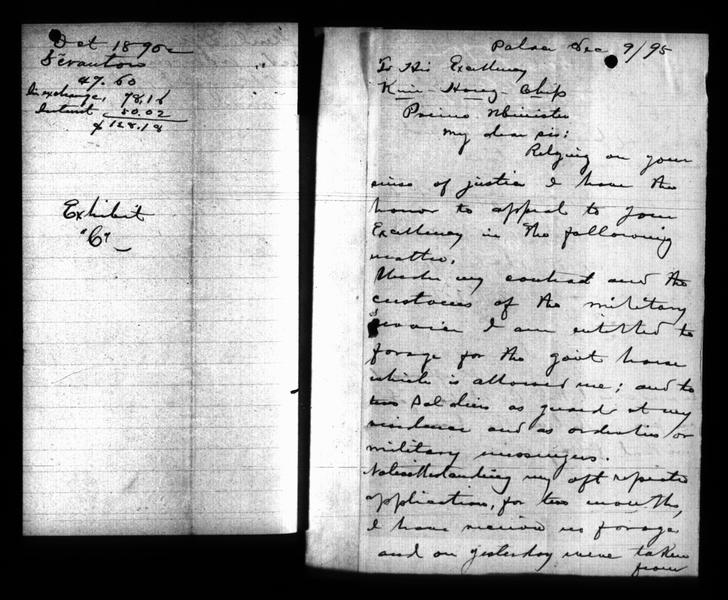 Oct 1890
Scranton
47.60
In exchange, 78.16
Interest 50.02
$128.18
Exhibit
"C"
Palace Dec 9/95
To His Excellency
Kim-Hong-Chip
Prime Minister
My dear sir:
Relying on your
sense of justice I have the
honor to appeal to your
Excellency in the following
matter.
Under my contract and the
customs of the military
service I am entitled to
forage for the govt horse
which is allowed me; and to
two soldiers as guard at my
residence and as orderlies or
military messengers.
Notwithstanding my oft repeated
application, for two months,
I have received no forage
and on yesterday were taken
from